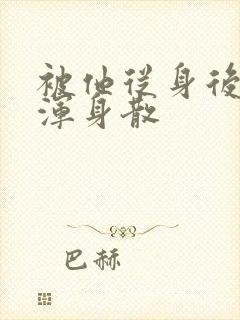 被他从身後
渾身散
巴赫